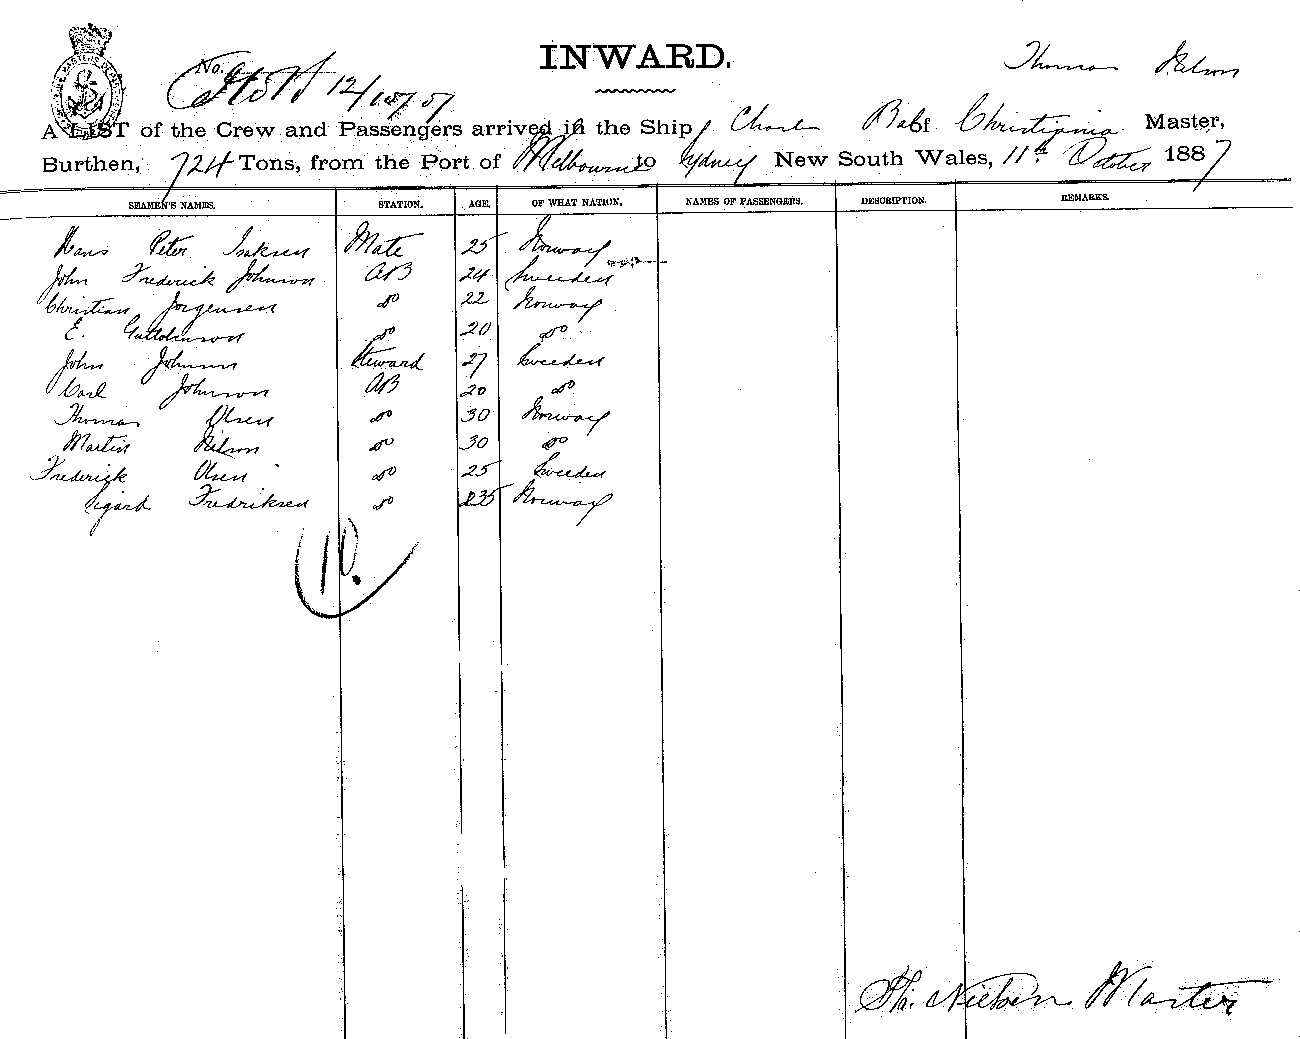 INWARD.
Thomas Nelson
No. 12/10/87
A LIST of the Crew and Passengers arrived in the Ship Charles Bal of Christiania Master,
Burthen, 724 Tons, from the Port of Melbourne to Sydney New South Wales, 11th October 1887
SEAMEN'S NAMES. STATION. AGE. OF WHAT NATION. NAMES OF PASSENGERS. DESCRIPTION. REMARKS.
Hans Peter Isaksen Mate 25 Norway
John Frederick Johnson AB 24 Sweeden
Christian Jorgensen do 22 Norway
E. do 20 do
John Johnson Steward 27 Sweeden
Carl Johnson AB 20 do
Thomas Olsen do 30 Norway
Martin Nelson do 30 do
Frederick Olsen do 25 Sweeden
Sigard Fredriksen do 35 Norway
10.
Th. Nielsen Master